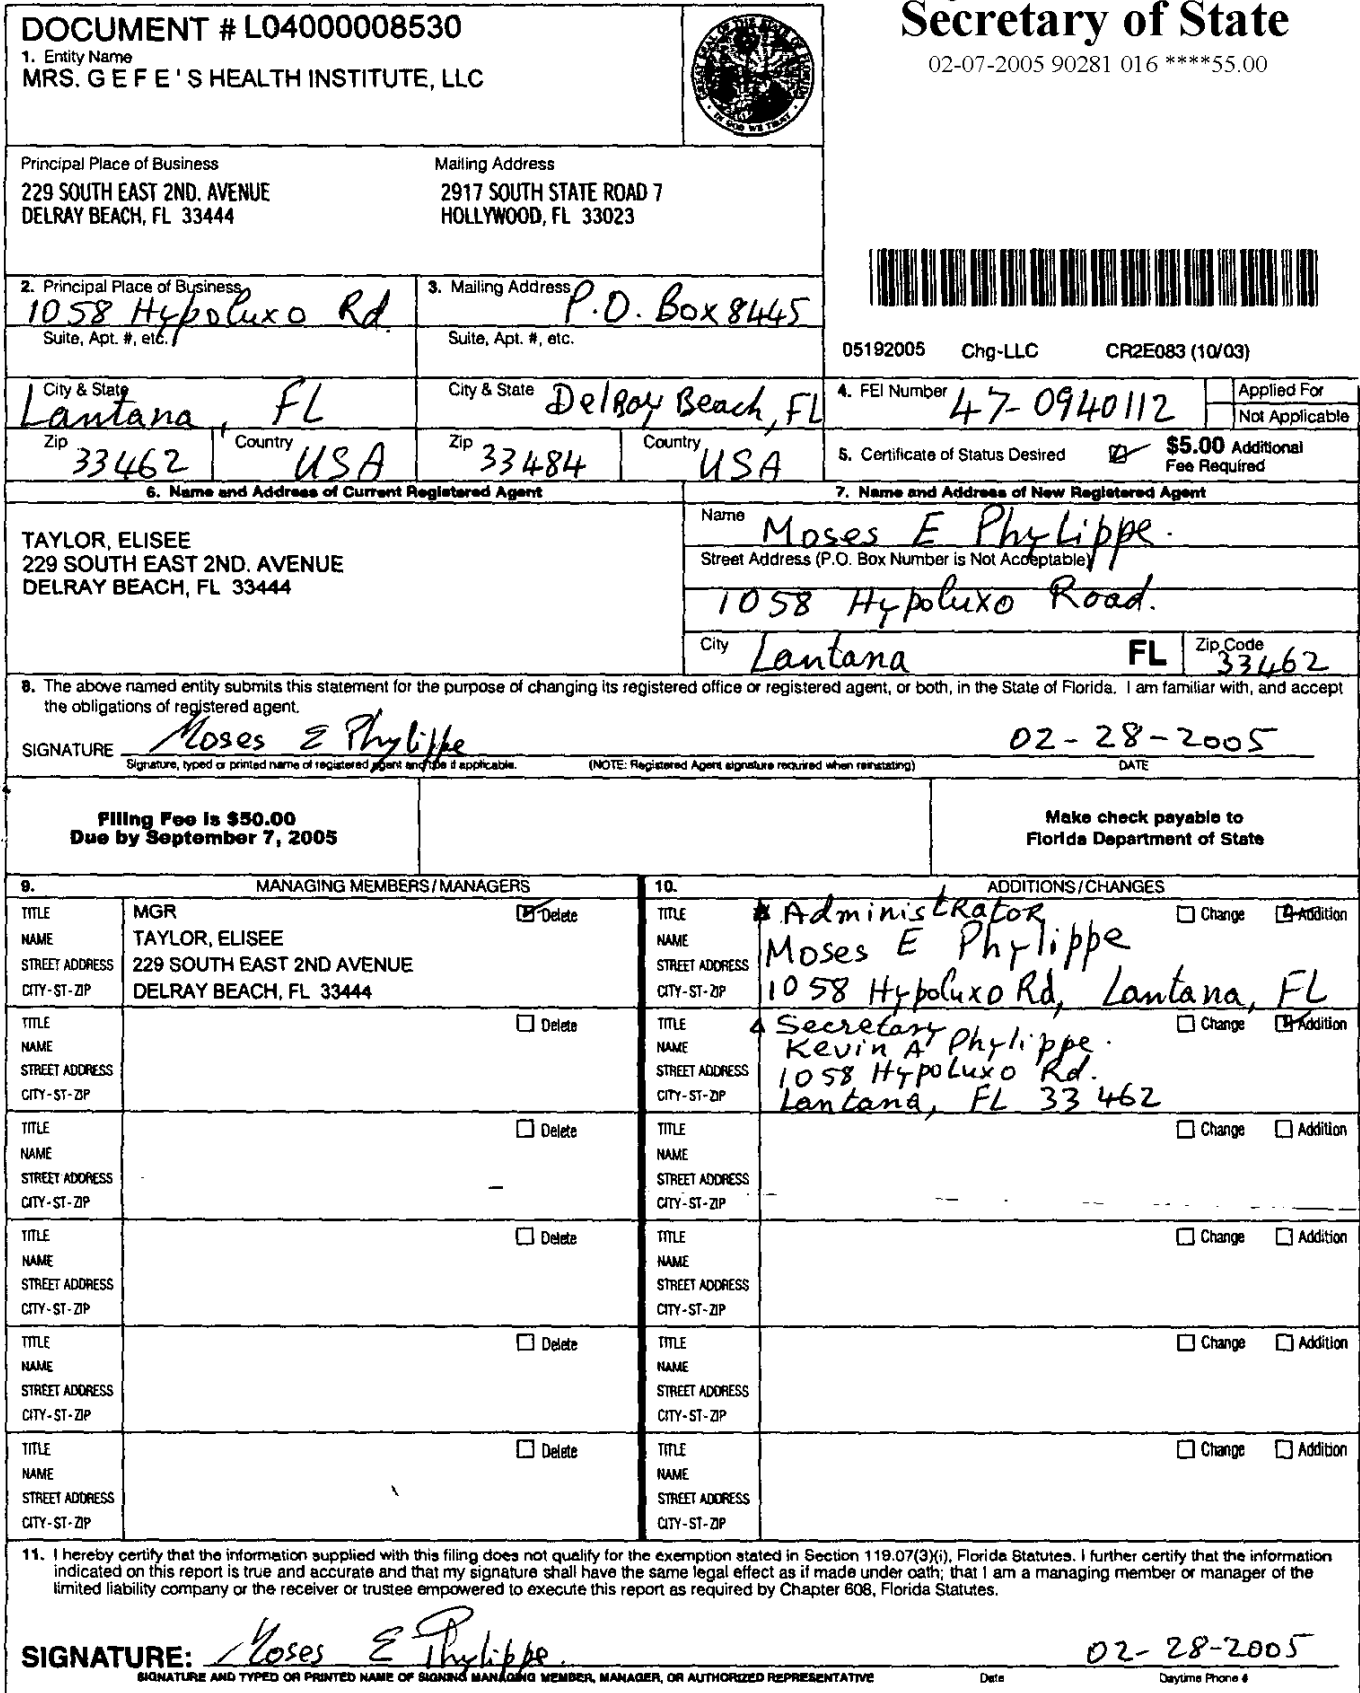 DOCUMENT # L04000008530
1. Entity Name
MRS. G E F E ' S HEALTH INSTITUTE, LLC
Secretary of State
02-07-2005 90281 016 ****55.00
Principal Place of Business
229 SOUTH EAST 2ND. AVENUE
DELRAY BEACH, FL 33444
Mailing Address
2917 SOUTH STATE ROAD 7
HOLLYWOOD, FL 33023
2. Principal Place of Business
1058 Hypoluxo Rd
3. Mailing Address
P.O. Box 8445
Suite, Apt. #, etc.
Suite, Apt. #, etc.
05192005 Chg-LLC CR2E083 (10/03)
City & State
Lantana, FL
City & State
DelRay Beach, FL
4. FEI Number
47-0940112
Applied For
Not Applicable
Zip
33462
Country
USA
Zip
33484
Country
USA
5. Certificate of Status Desired
$5.00 Additional
Fee Required
6. Name and Address of Current Registered Agent
TAYLOR, ELISEE
229 SOUTH EAST 2ND. AVENUE
DELRAY BEACH, FL 33444
7. Name and Address of New Registered Agent
Name
Moses E Phylippe.
Street Address (P.O. Box Number is Not Acceptable)
1058 Hypoluxo Road.
City
Lantana
FL
Zip Code
33462
8. The above named entity submits this statement for the purpose of changing its registered office or registered agent, or both, in the State of Florida. I am familiar with, and accept
the obligations of registered agent.
SIGNATURE Moses E Phylippe 02-28-2005
Signature, typed or printed name of registered agent and title if applicable. (NOTE: Registered Agent signature required when reinstating) DATE
Filing Fee is $50.00
Due by September 7, 2005
Make check payable to
Florida Department of State
9. MANAGING MEMBERS/MANAGERS
TITLE MGR Delete
NAME TAYLOR, ELISEE
STREET ADDRESS 229 SOUTH EAST 2ND AVENUE
CITY-ST-ZIP DELRAY BEACH, FL 33444
TITLE Delete
NAME
STREET ADDRESS
CITY-ST-ZIP
TITLE Delete
NAME
STREET ADDRESS
CITY-ST-ZIP
TITLE Delete
NAME
STREET ADDRESS
CITY-ST-ZIP
TITLE Delete
NAME
STREET ADDRESS
CITY-ST-ZIP
TITLE Delete
NAME
STREET ADDRESS
CITY-ST-ZIP
10. ADDITIONS/CHANGES
TITLE Administrator Change Addition
NAME Moses E Phylippe
STREET ADDRESS
CITY-ST-ZIP 1058 Hypoluxo Rd, Lantana, FL
TITLE Secretary Change Addition
NAME Kevin A Phylippe.
STREET ADDRESS 1058 Hypoluxo Rd.
CITY-ST-ZIP Lantana, FL 33462
TITLE Change Addition
NAME
STREET ADDRESS
CITY-ST-ZIP
TITLE Change Addition
NAME
STREET ADDRESS
CITY-ST-ZIP
TITLE Change Addition
NAME
STREET ADDRESS
CITY-ST-ZIP
TITLE Change Addition
NAME
STREET ADDRESS
CITY-ST-ZIP
11. I hereby certify that the information supplied with this filing does not qualify for the exemption stated in Section 119.07(3)(i), Florida Statutes. I further certify that the information
indicated on this report is true and accurate and that my signature shall have the same legal effect as if made under oath; that I am a managing member or manager of the
limited liability company or the receiver or trustee empowered to execute this report as required by Chapter 608, Florida Statutes.
SIGNATURE: Moses E Phylippe. 02-28-2005
SIGNATURE AND TYPED OR PRINTED NAME OF SIGNING MANAGING MEMBER, MANAGER, OR AUTHORIZED REPRESENTATIVE Date Daytime Phone #